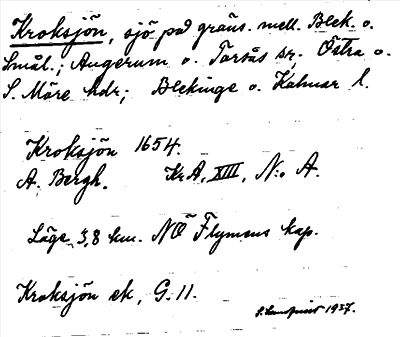 Kroksjön, sjö på gräns. mell. Blek. o.
Smål.; Augerum o. Torsås sr; Östra o.
S. Möre hdr; Blekinge o. Kalmar l.
Kroksjön 1654.
A. Bergh. Kr.A. XIII, N:o A.
Läge 3,8 km. NÖ Flymens kap.
Kroksjön ek, G. 11.
S. Lundquist 1937.